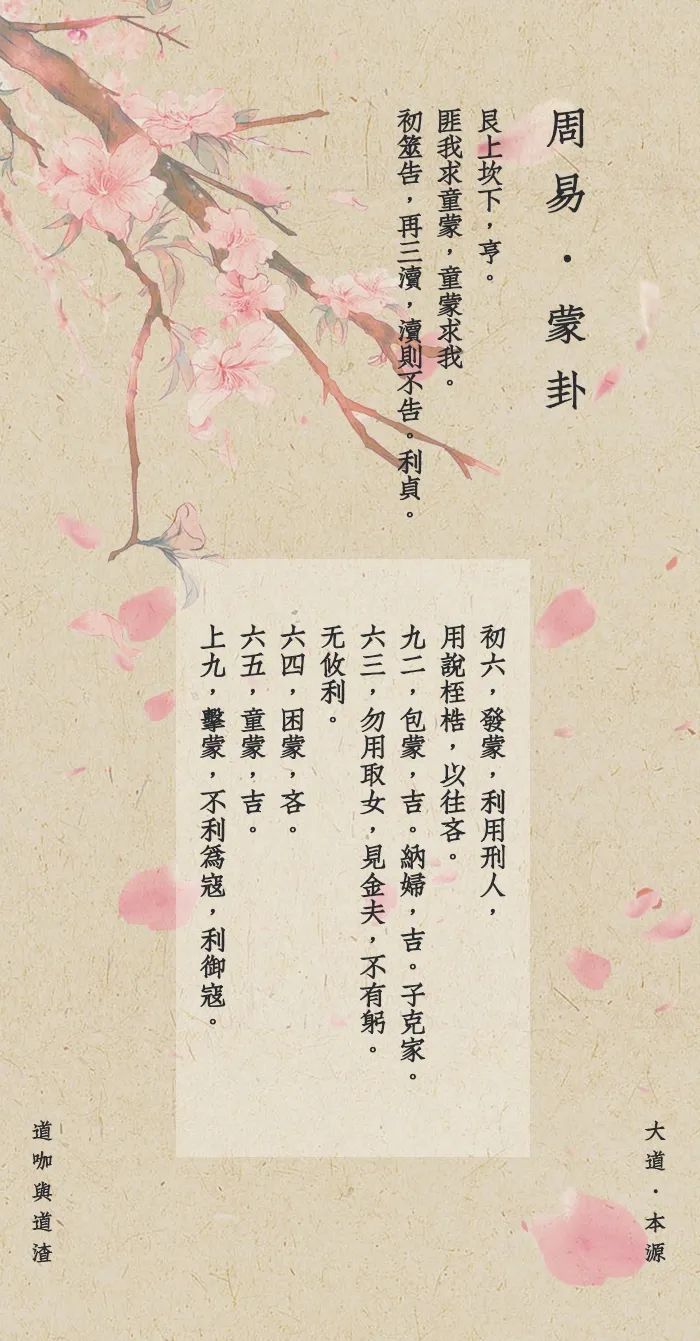 周易·蒙卦
艮上坎下，亨。
匪我求童蒙，童蒙求我。
初筮告，再三瀆，瀆則不告。利貞。
初六，發蒙，利用刑人，
用說桎梏，以往吝。
九二，包蒙，吉。納婦，吉。子克家。
六三，勿用取女，見金夫，不有躬。
无攸利。
六四，困蒙，吝。
六五，童蒙，吉。
上九，擊蒙，不利為寇，利御寇。
大道·本源
道咖與道渣